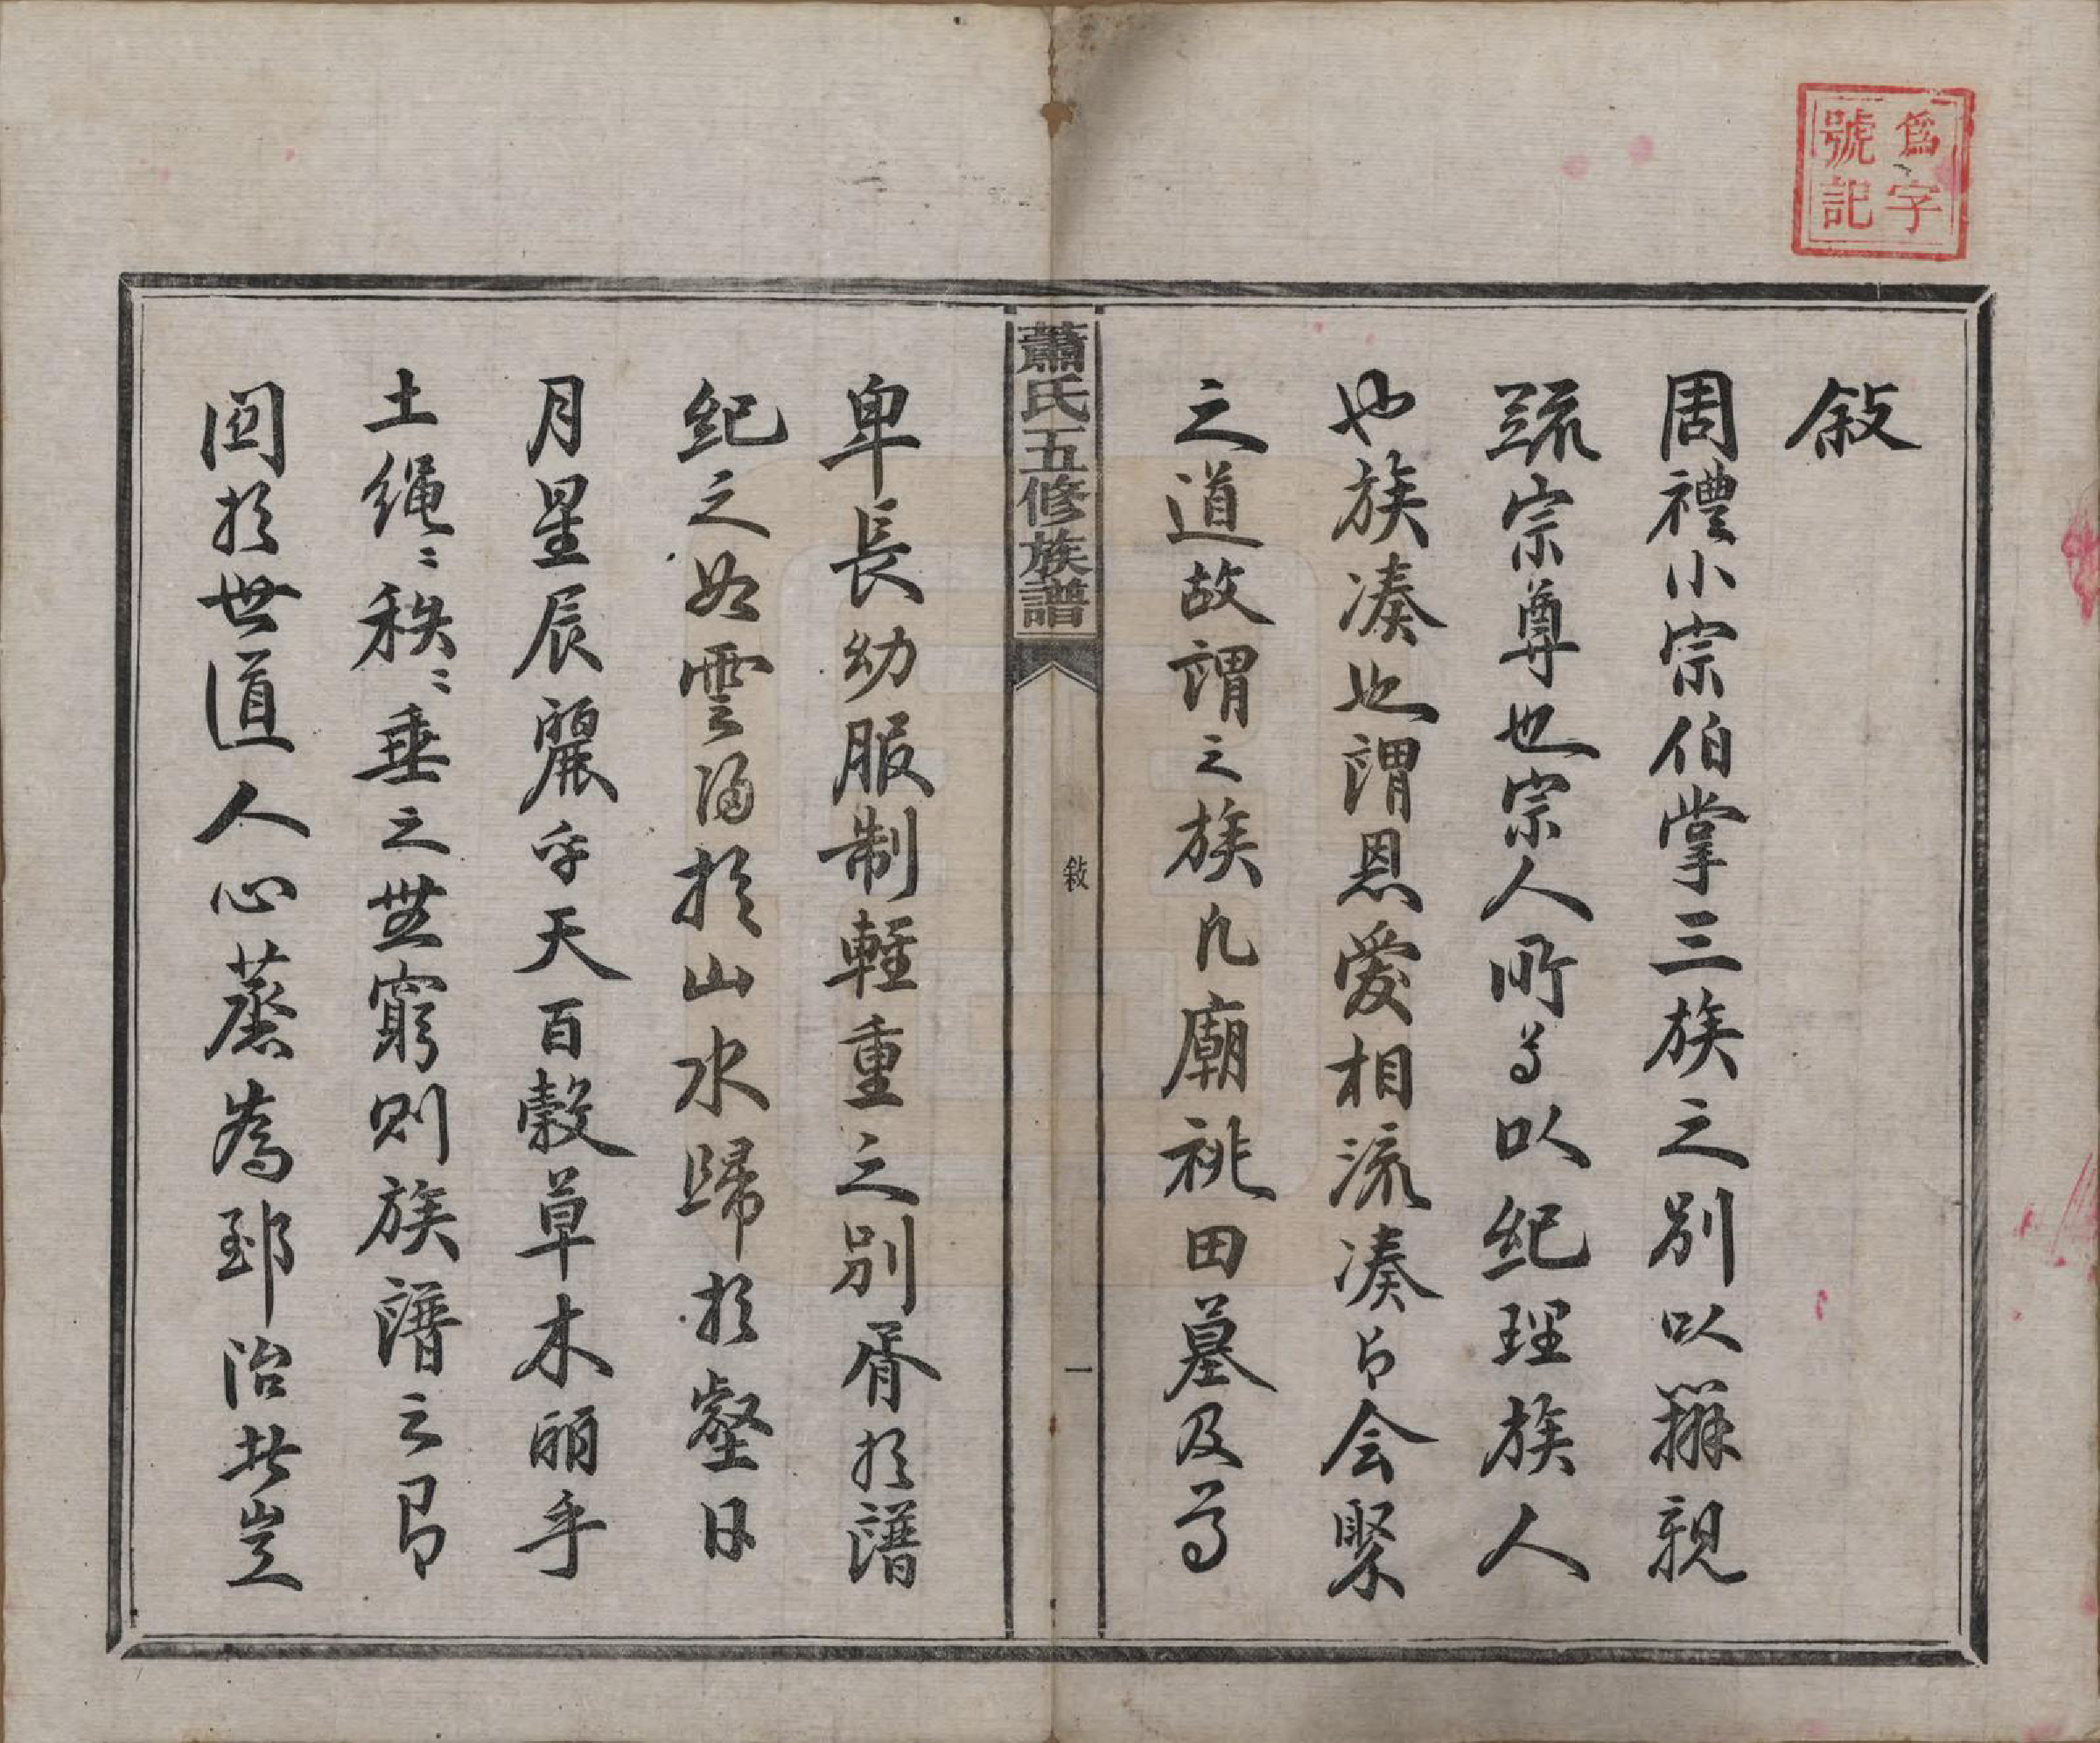 為字
號記
敍
周禮小宗伯掌三族之別以辨親
疏宗尊也宗人所尊以紀理族人
也族湊也謂恩愛相流湊有會聚
之道故謂之族凡廟祧田墓及尊
蕭氏五修族譜
敍
一
卑長幼服制輕重之別胥於譜
紀之如雲歸於山水歸於壑日
月星辰麗乎天百穀草木麗乎
土繩〻秩〻垂之無窮則族譜之
固於世道人心蒸為郅治者豈